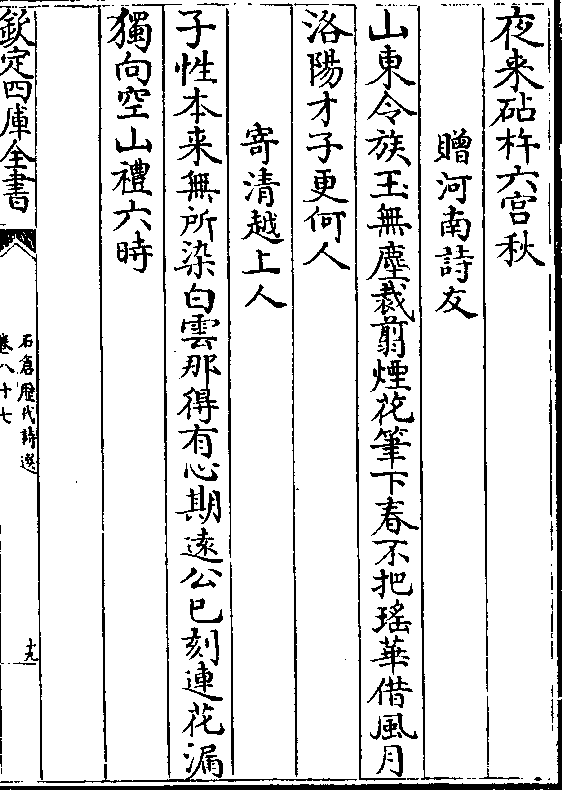 夜来砧杵六宫秋
贈河南詩友
山東令族玉無塵裁剪煙花筆下春不把瑤華借風月
洛陽才子更何人
寄清越上人
子性本来無所染白雲那得有心期遠公已刻連花漏
獨向空山禮六時
欽定四庫全書
石倉歷代詩選
卷八十七
十九